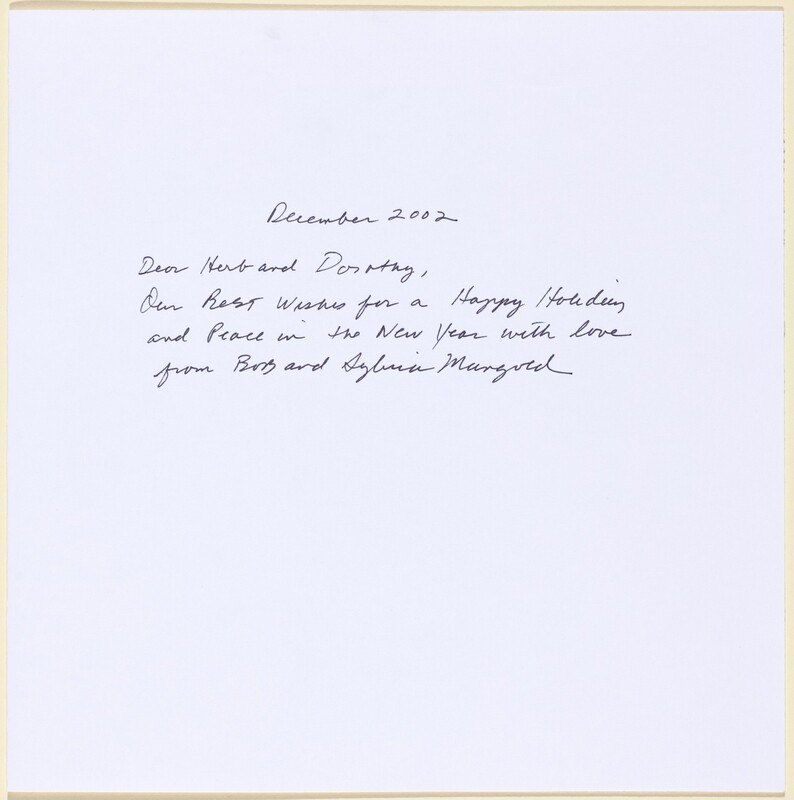 December 2002
Dear Herb and Dorothy,
Our Best Wishes for a Happy Holiday
and Peace in the New Year with love
from Bob and Sylvia Mangold